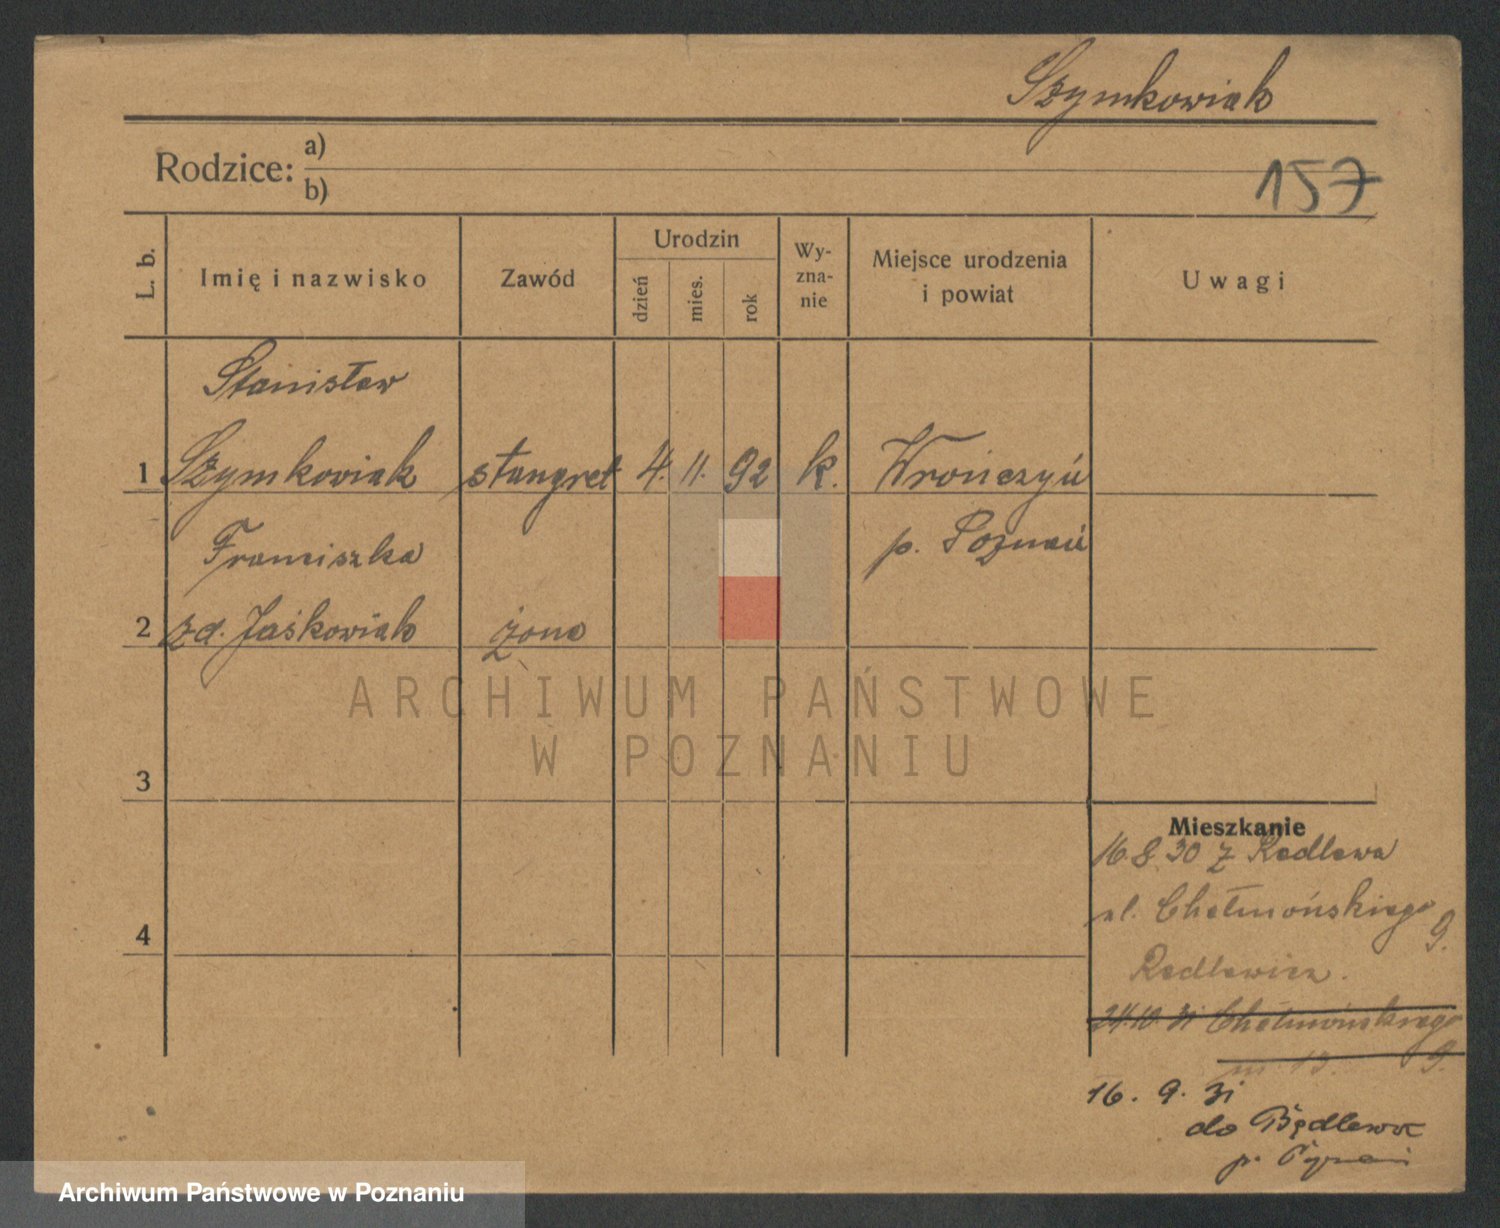 Szymkowiak
Rodzice: a)
b)
157
L. b.
Imię i nazwisko
Zawód
Urodzin
dzień
mies.
rok
Wy-
zna-
nie
Miejsce urodzenia
i powiat
Uwagi
Stanisław
1 Szymkowiak stangret 4. 11. 92 k. Wrończyń
Franciszka p. Poznań
2 zd. Jaśkowiak żona
ARCHIWUM PAŃSTWOWE
W POZNANIU
3
Mieszkanie
16 8 30 z Radlewa
ul. Chełmońskiego
9.
4
24.10 31 Chełmońskiego
m 13. 9.
16. 9. 31
do Będlewa
p.
Archiwum Państwowe w Poznaniu